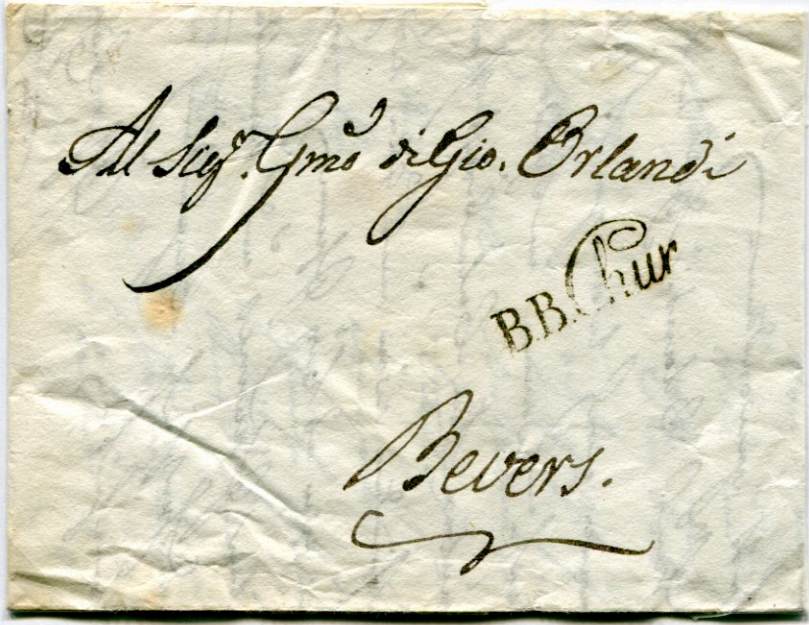 Al Sigr. Gmo di Gio. Orlandi
B.B. Chur
Bevers.